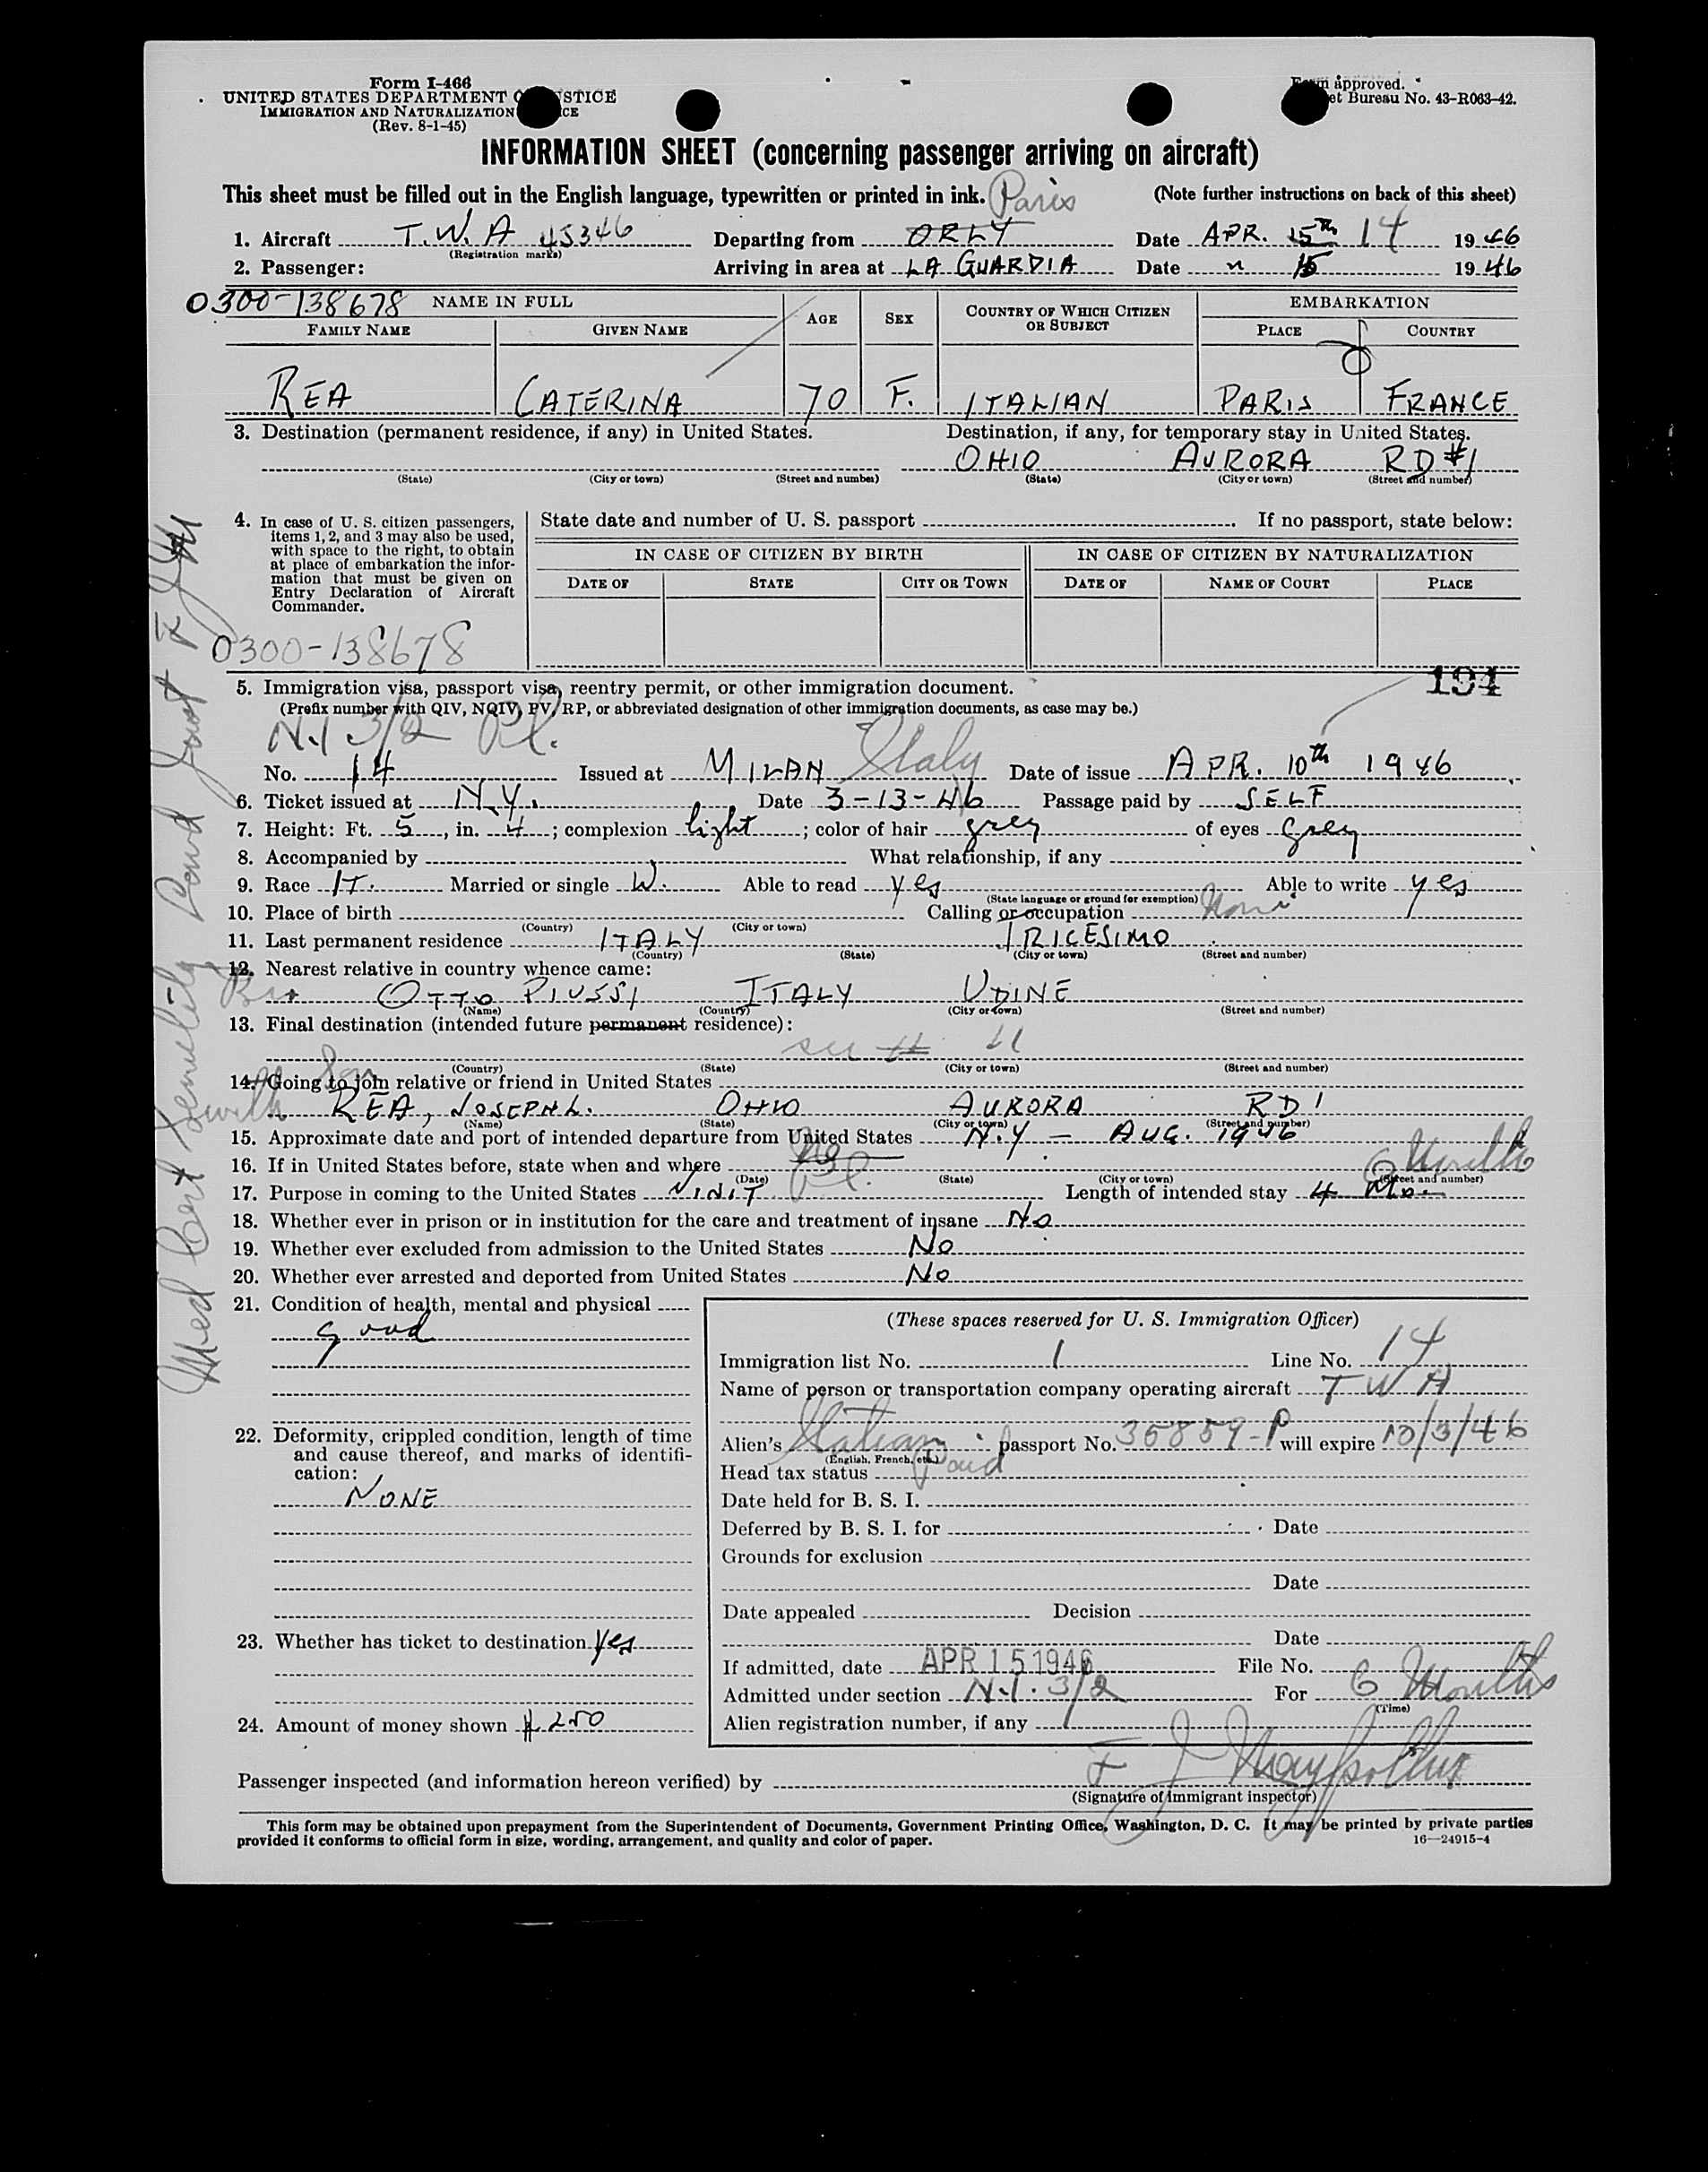 Form I-466
UNITED STATES DEPARTMENT STICE
IMMIGRATION AND NATURALIZATION ICE
(Rev. 8-1-45)
Form approved.
et Bureau No. 43-R063-42.
INFORMATION SHEET (concerning passenger arriving on aircraft)
This sheet must be filled out in the English language, typewritten or printed in ink. Paris (Note further instructions on back of this sheet)
1. Aircraft T.W.A 45346 Departing from ORLY Date APR. 15th 14 1946
(Registration marks)
2. Passenger: Arriving in area at LA GUARDIA Date " 15 1946
0300-138678 NAME IN FULL AGE SEX COUNTRY OF WHICH CITIZEN OR SUBJECT EMBARKATION
FAMILY NAME GIVEN NAME PLACE COUNTRY
REA CATERINA 70 F. ITALIAN PARIS FRANCE
3. Destination (permanent residence, if any) in United States. Destination, if any, for temporary stay in United States.
OHIO AURORA RD #1
(State) (City or town) (Street and number) (State) (City or town) (Street and number)
4. In case of U. S. citizen passengers, items 1, 2, and 3 may also be used, with space to the right, to obtain at place of embarkation the information that must be given on Entry Declaration of Aircraft Commander.
State date and number of U. S. passport . If no passport, state below:
IN CASE OF CITIZEN BY BIRTH IN CASE OF CITIZEN BY NATURALIZATION
DATE OF STATE CITY OR TOWN DATE OF NAME OF COURT PLACE
0300-138678
194
5. Immigration visa, passport visa, reentry permit, or other immigration document.
(Prefix number with QIV, NQIV, PV, RP, or abbreviated designation of other immigration documents, as case may be.)
N.I 3/2 Pl.
No. 14 Issued at MILAN Italy Date of issue APR. 10th 1946
6. Ticket issued at N.Y. Date 3-13-46 Passage paid by SELF
7. Height: Ft. 5, in. 4; complexion light; color of hair grey of eyes Grey
8. Accompanied by What relationship, if any
9. Race IT. Married or single W. Able to read yes Able to write yes
(State language or ground for exemption)
10. Place of birth Calling or occupation None
(Country) (City or town)
11. Last permanent residence ITALY TRICESIMO
(Country) (State) (City or town) (Street and number)
12. Nearest relative in country whence came:
Bro OTTO PIUSSI ITALY UDINE
(Name) (Country) (City or town) (Street and number)
13. Final destination (intended future permanent residence):
see
(Country) (State) (City or town) (Street and number)
14. Going to join relative or friend in United States
Son
REA, JOSEPH L. OHIO AURORA RD 1
(Name) (State) (City or town) (Street and number)
15. Approximate date and port of intended departure from United States N.Y - AUG. 1946
16. If in United States before, state when and where No
(Date) (State) (City or town) (Street and number)
17. Purpose in coming to the United States VISIT Pl. Length of intended stay 4 Mo. 6 Months
18. Whether ever in prison or in institution for the care and treatment of insane No
19. Whether ever excluded from admission to the United States No
20. Whether ever arrested and deported from United States No
21. Condition of health, mental and physical
good
22. Deformity, crippled condition, length of time and cause thereof, and marks of identification:
NONE
23. Whether has ticket to destination yes
24. Amount of money shown $ 250
(These spaces reserved for U. S. Immigration Officer)
Immigration list No. 1 Line No. 14
Name of person or transportation company operating aircraft TWA
Alien's Italian passport No. 35859-P will expire 10/3/46
(English, French, etc.)
Head tax status Paid
Date held for B. S. I.
Deferred by B. S. I. for Date
Grounds for exclusion
Date
Date appealed Decision
Date
If admitted, date APR 15 1946 File No.
Admitted under section N.I. 3/2 For 6 Months
(Time)
Alien registration number, if any
Passenger inspected (and information hereon verified) by F J
(Signature of immigrant inspector)
This form may be obtained upon prepayment from the Superintendent of Documents, Government Printing Office, Washington, D. C. It may be printed by private parties
provided it conforms to official form in size, wording, arrangement, and quality and color of paper. 16—24915-4
Med Cert Senility